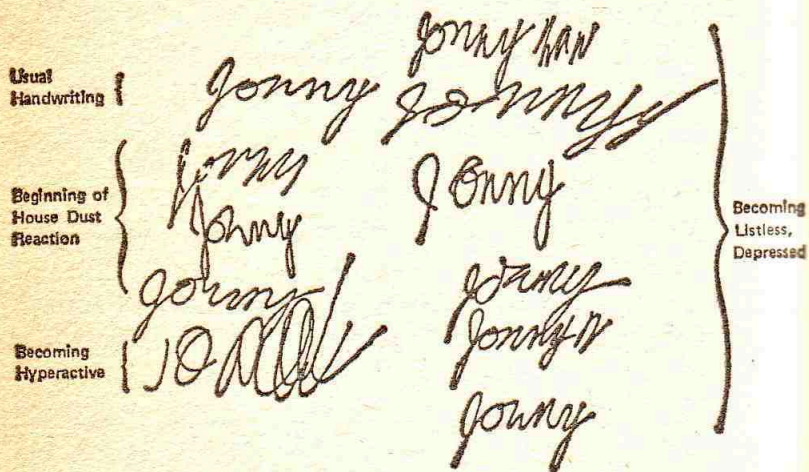 Usual
Handwriting
Jonny
Beginning of
House Dust
Reaction
Jonny
Johny
Jonny
Becoming
Hyperactive
Jonny
Jonny
Jonny
Jonny
Jonny
Jonny
Becoming
Listless,
Depressed